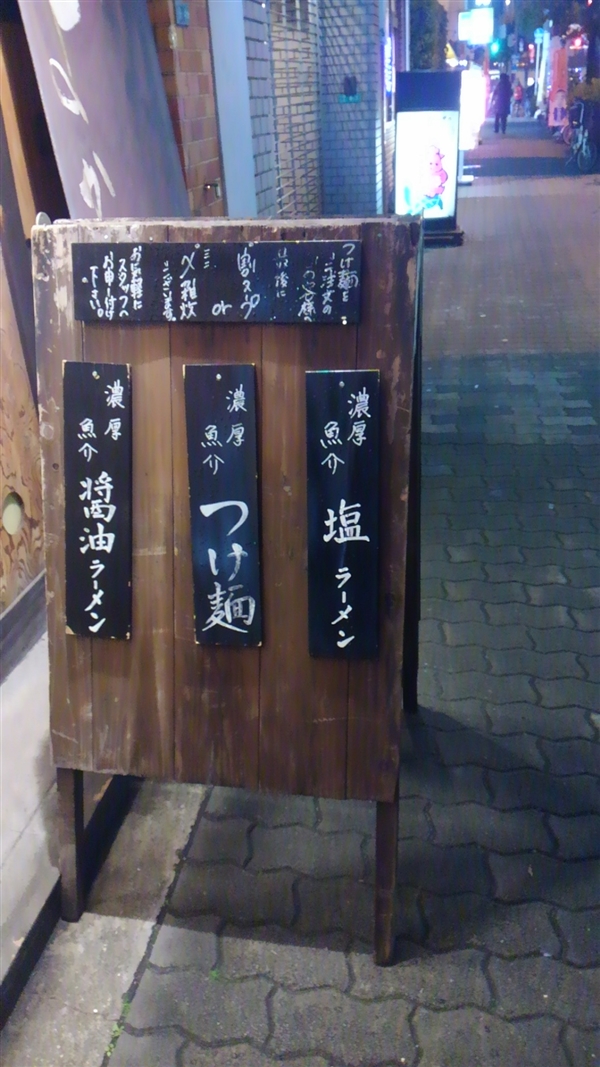 つけ麺を
ご注文の
お客様へ
最後に
割スープ
or
ミニ
〆雑炊
ございます。
お気軽に
スタッフへ
お申し付け
下さい。
濃厚
魚介
塩
ラーメン
濃厚
魚介
つけ麺
濃厚
魚介
醤油
ラーメン